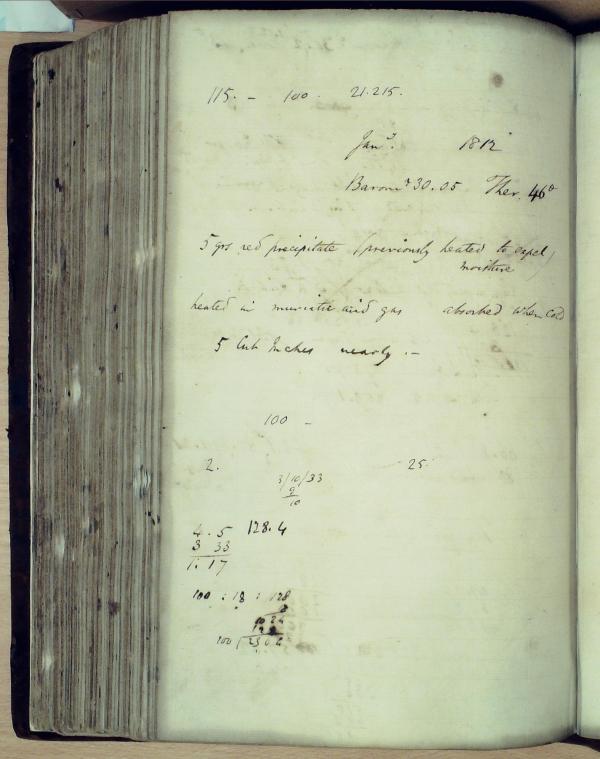 115. - 100. 21.215.
Jany. 1812
Baromr 30.05 Ther. 46°
5 grs red precipitate (previously heated to expel
moisture)
heated in muriatic acid gas absorbed when cold
5 Cub Inches nearly. -
100 -
2. 25
3/10/33
9
10
4.5 128.4
3 33
1.17
100 : 18 : 128
8
1024
128
100 | 2304